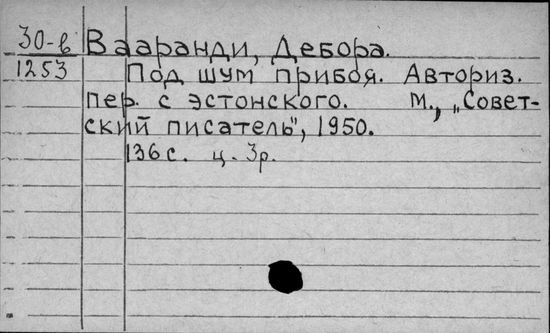 30-в Вааранди, Дебора.
1253 Под шум прибоя. Авториз.
пер. с эстонского. М., „Совет-
ский писатель", 1950.
136 с. ц. 3р.